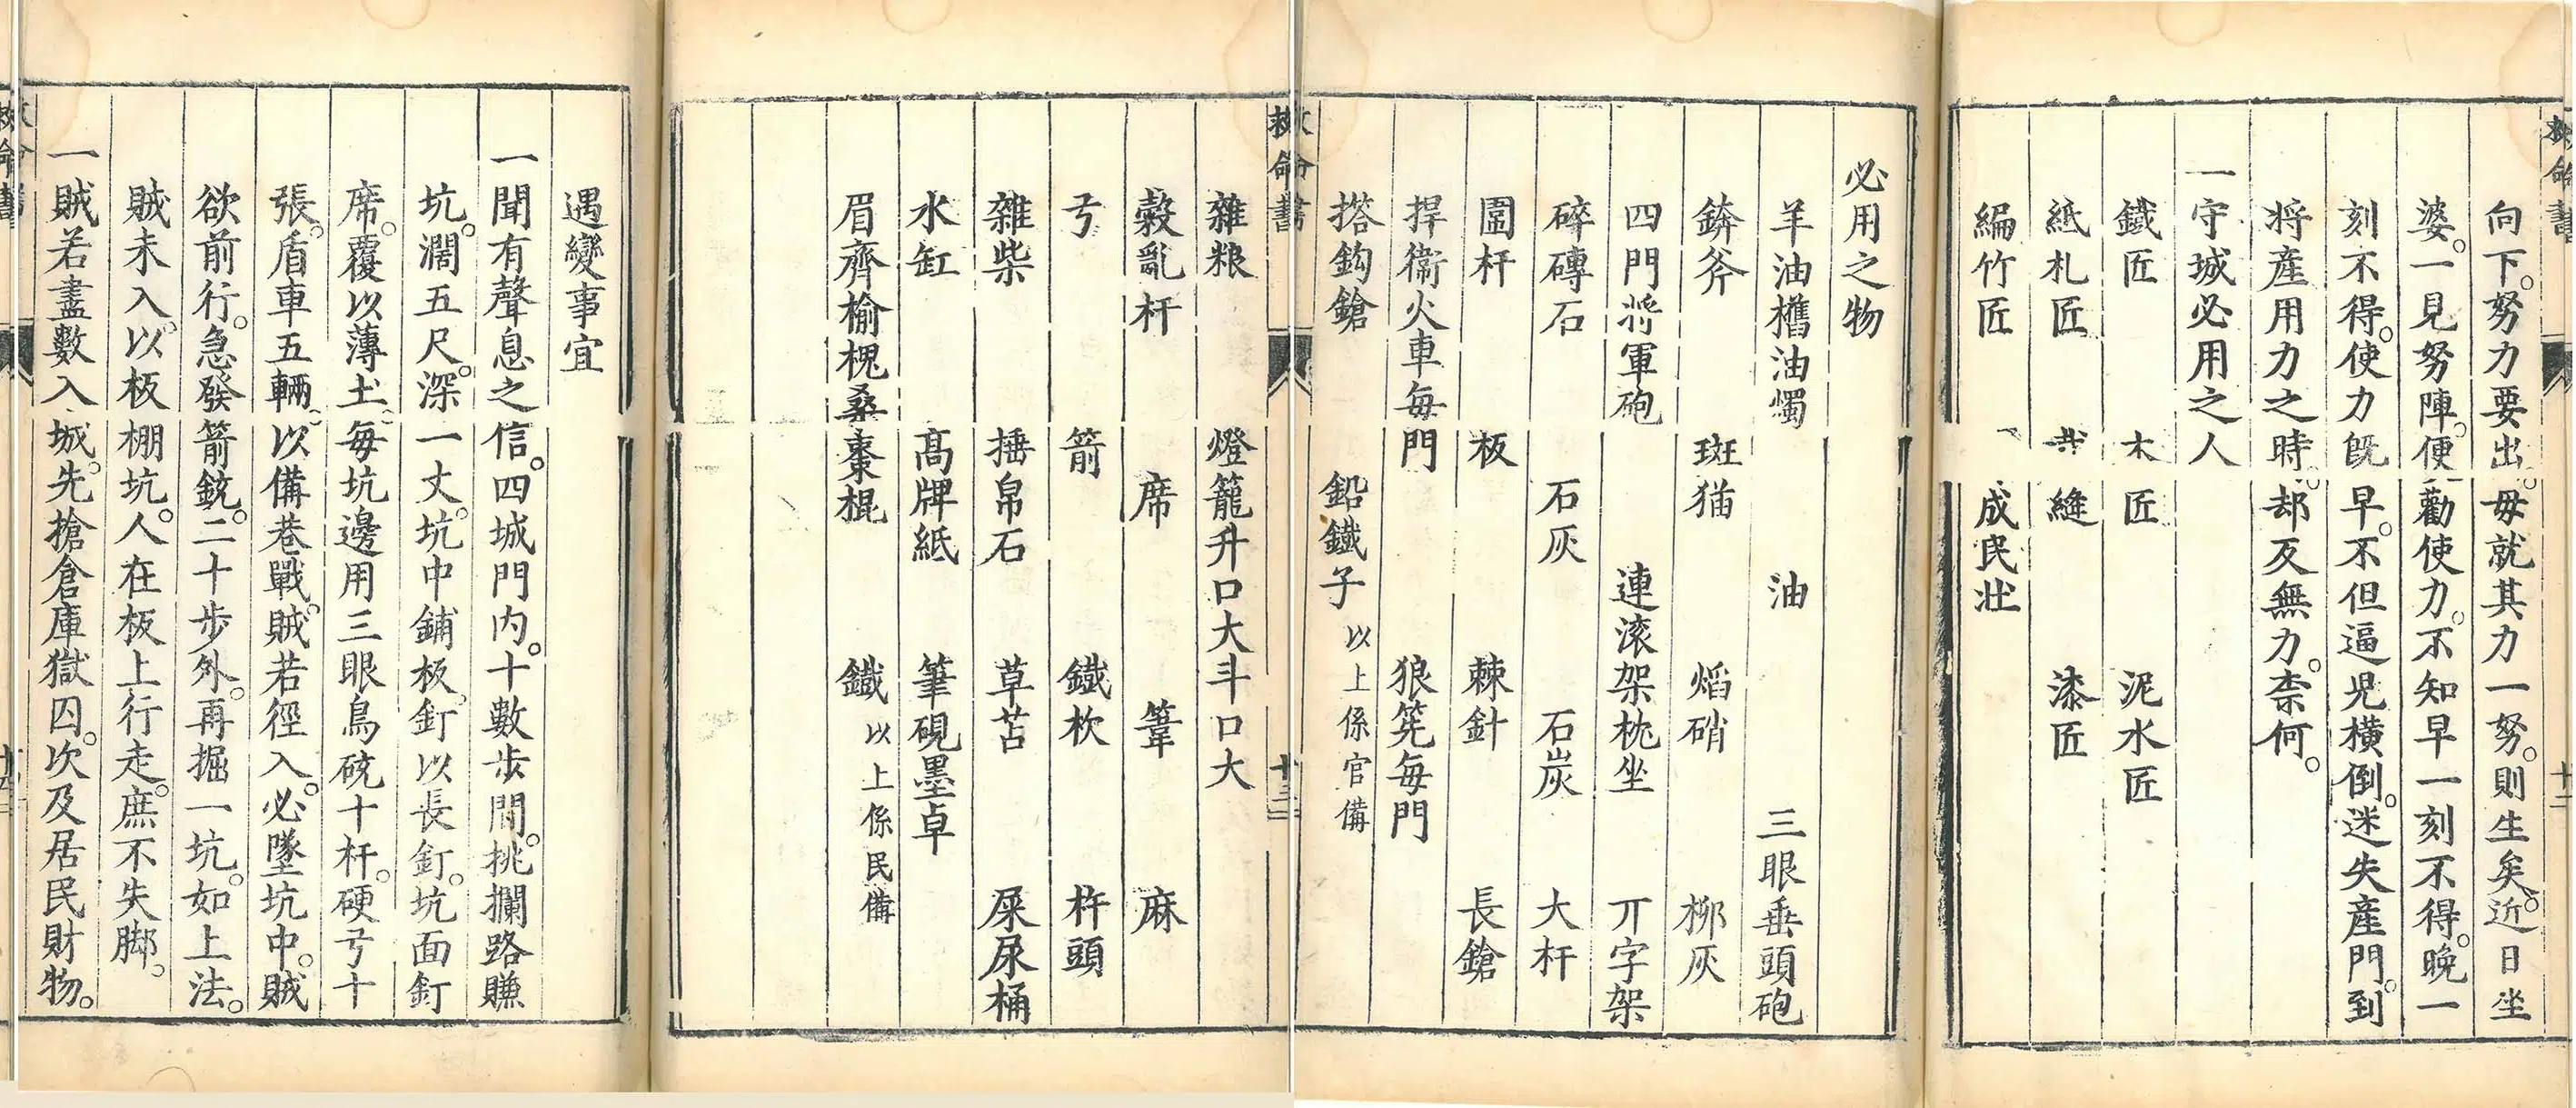 向下。努力要出。毋就其力一努。則生矣。近日坐
婆。一見努陣。便勸使力。不知早一刻不得。晚一
刻不得。使力既早。不但逼児橫倒。迷失産門。到
将産用力之時。却反無力。柰何。
一守城必用之人
鐵匠 木匠 泥水匠
紙札匠 裁縫 漆匠
編竹匠 成民壯
救命書 十二
必用之物
羊油㯭油燭 油 三眼垂頭砲
錛斧 斑猫 熖硝 栁灰
四門将軍砲 連滚架枕坐 丌字架
碎磚石 石灰 石炭 大杆
圍杆 板 棘針 長鎗
捍衛火車每門 狼筅每門
撘鈎鎗 鉛鐵子 以上係官備
救命書 十三
雜粮 燈籠升口大斗口大
穀亂杆 席 葦 麻
弓 箭 鐵杴 杵頭
雜柴 捶帛石 草苫 屎尿桶
水缸 髙牌紙 筆硯墨卓
眉齊榆槐桑棗棍 鐵 以上係民備
遇變事宜
一聞有聲息之信。四城門内。十數步間。挑攔路賺
坑。濶五尺。深一丈。坑中鋪板。釘以長釘。坑面釘
席。覆以薄土。每坑邊用三眼鳥砊十杆。硬弓十
張。盾車五輛。以備巷戰。賊若徑入。必墜坑中。賊
欲前行。急發箭銃。二十步外。再掘一坑。如上法。
賊未入。以板棚坑。人在板上行走。庶不失脚。
一賊若盡數入城。先搶倉庫獄囚。次及居民財物。
救命書 十四